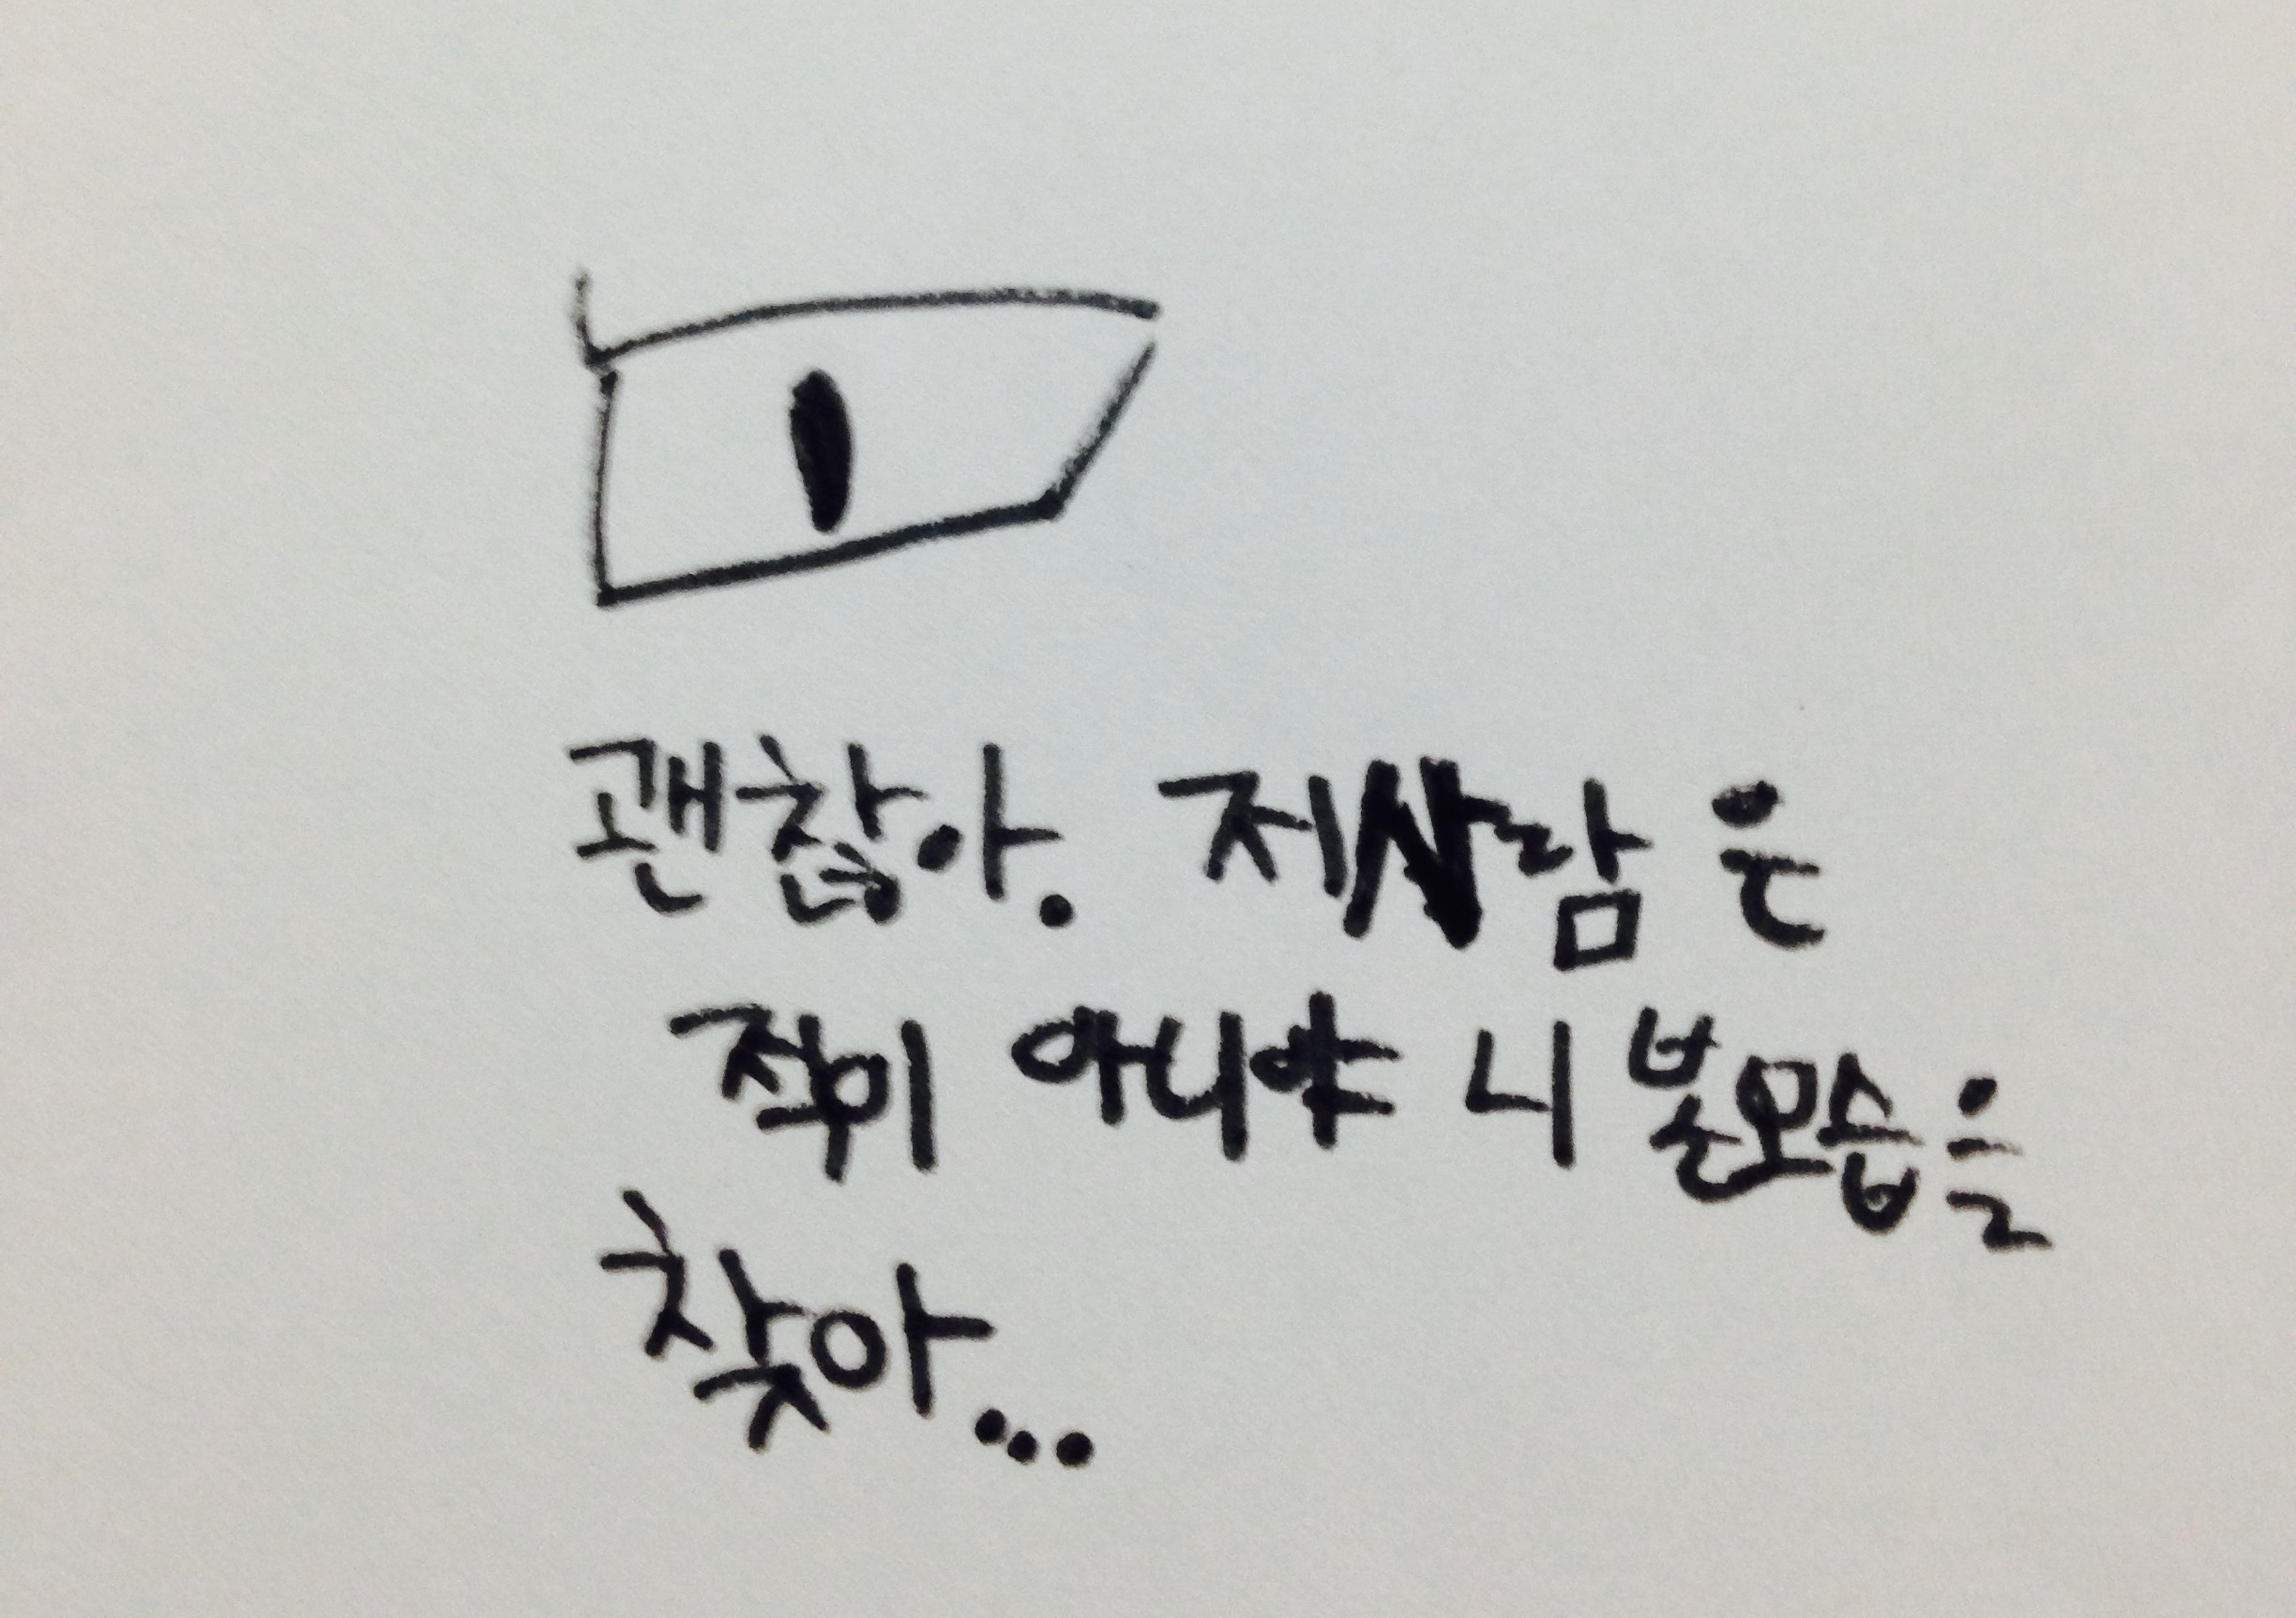 괜찮아. 저사람은
적이 아니야 니 본모습을
찾아...